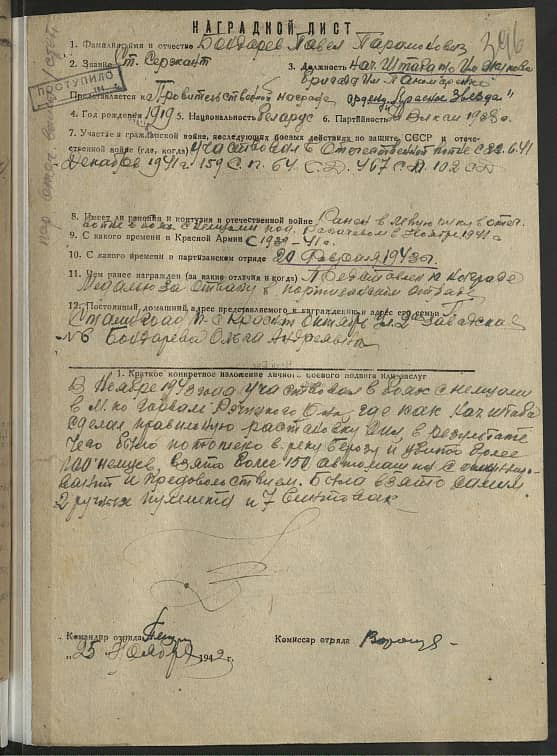 НАГРАДНОЙ ЛИСТ
396
1. Фамилия, имя и отчество Бондарев Павел
2. Звание Ст. Сержант 3. Должность Нач. Штаба
ПОСТУПИЛО
бригада им Панамаренко
Представляется к Правительственной награде ордену "Красное Звезда"
4. Год рождения 1919 5. Национальность Беларус 6. Партийность
7. Участие в гражданской войне, последующих боевых действиях по защите СССР и отече-
ственной войне (где, когда) участвовал в Отечественной войне с 22.6.41
Декабрь 1941 г. 159 С.П. 64 С.Д. 467 С.П. 102 СД
8. Имеет ли ранения и контузии в отечественной войне Ранен в левую в отеч.
войне в боях с немцами под в ноябре 1941 г.
9. С какого времени в Красной Армии С 1939-41 г.
10. С какого времени в партизанском отряде 20 Февраля 1943 г
11. Чем ранее награжден (за какие отличия и когда) Представлен к награде
Медалью За Отвагу в партизанском отряде
12. Постоянный домашний адрес представляемого к награждению и адрес его семьи Г.
Сталинград п-с Красный Октябрь ул 2я
№ 6 Бондарева Ольга Андреевна
1. Краткое конкретное изложение личного боевого подвига или заслуг
В Ноябре 1943 года участвовал в боях с немцами
в М-ко Горвали Речицкого р-на, где как нач штаба
сделал правильную растановку сил в результате
чего было потоплено в реку березу и убито более
100 немцев, взято более 150 автомашин с
и продовольствием. Была взято самим
2 ручных пулемета и 7 винтовок
Командир отряда Комиссар отряда
"25 Ноября 194 г.